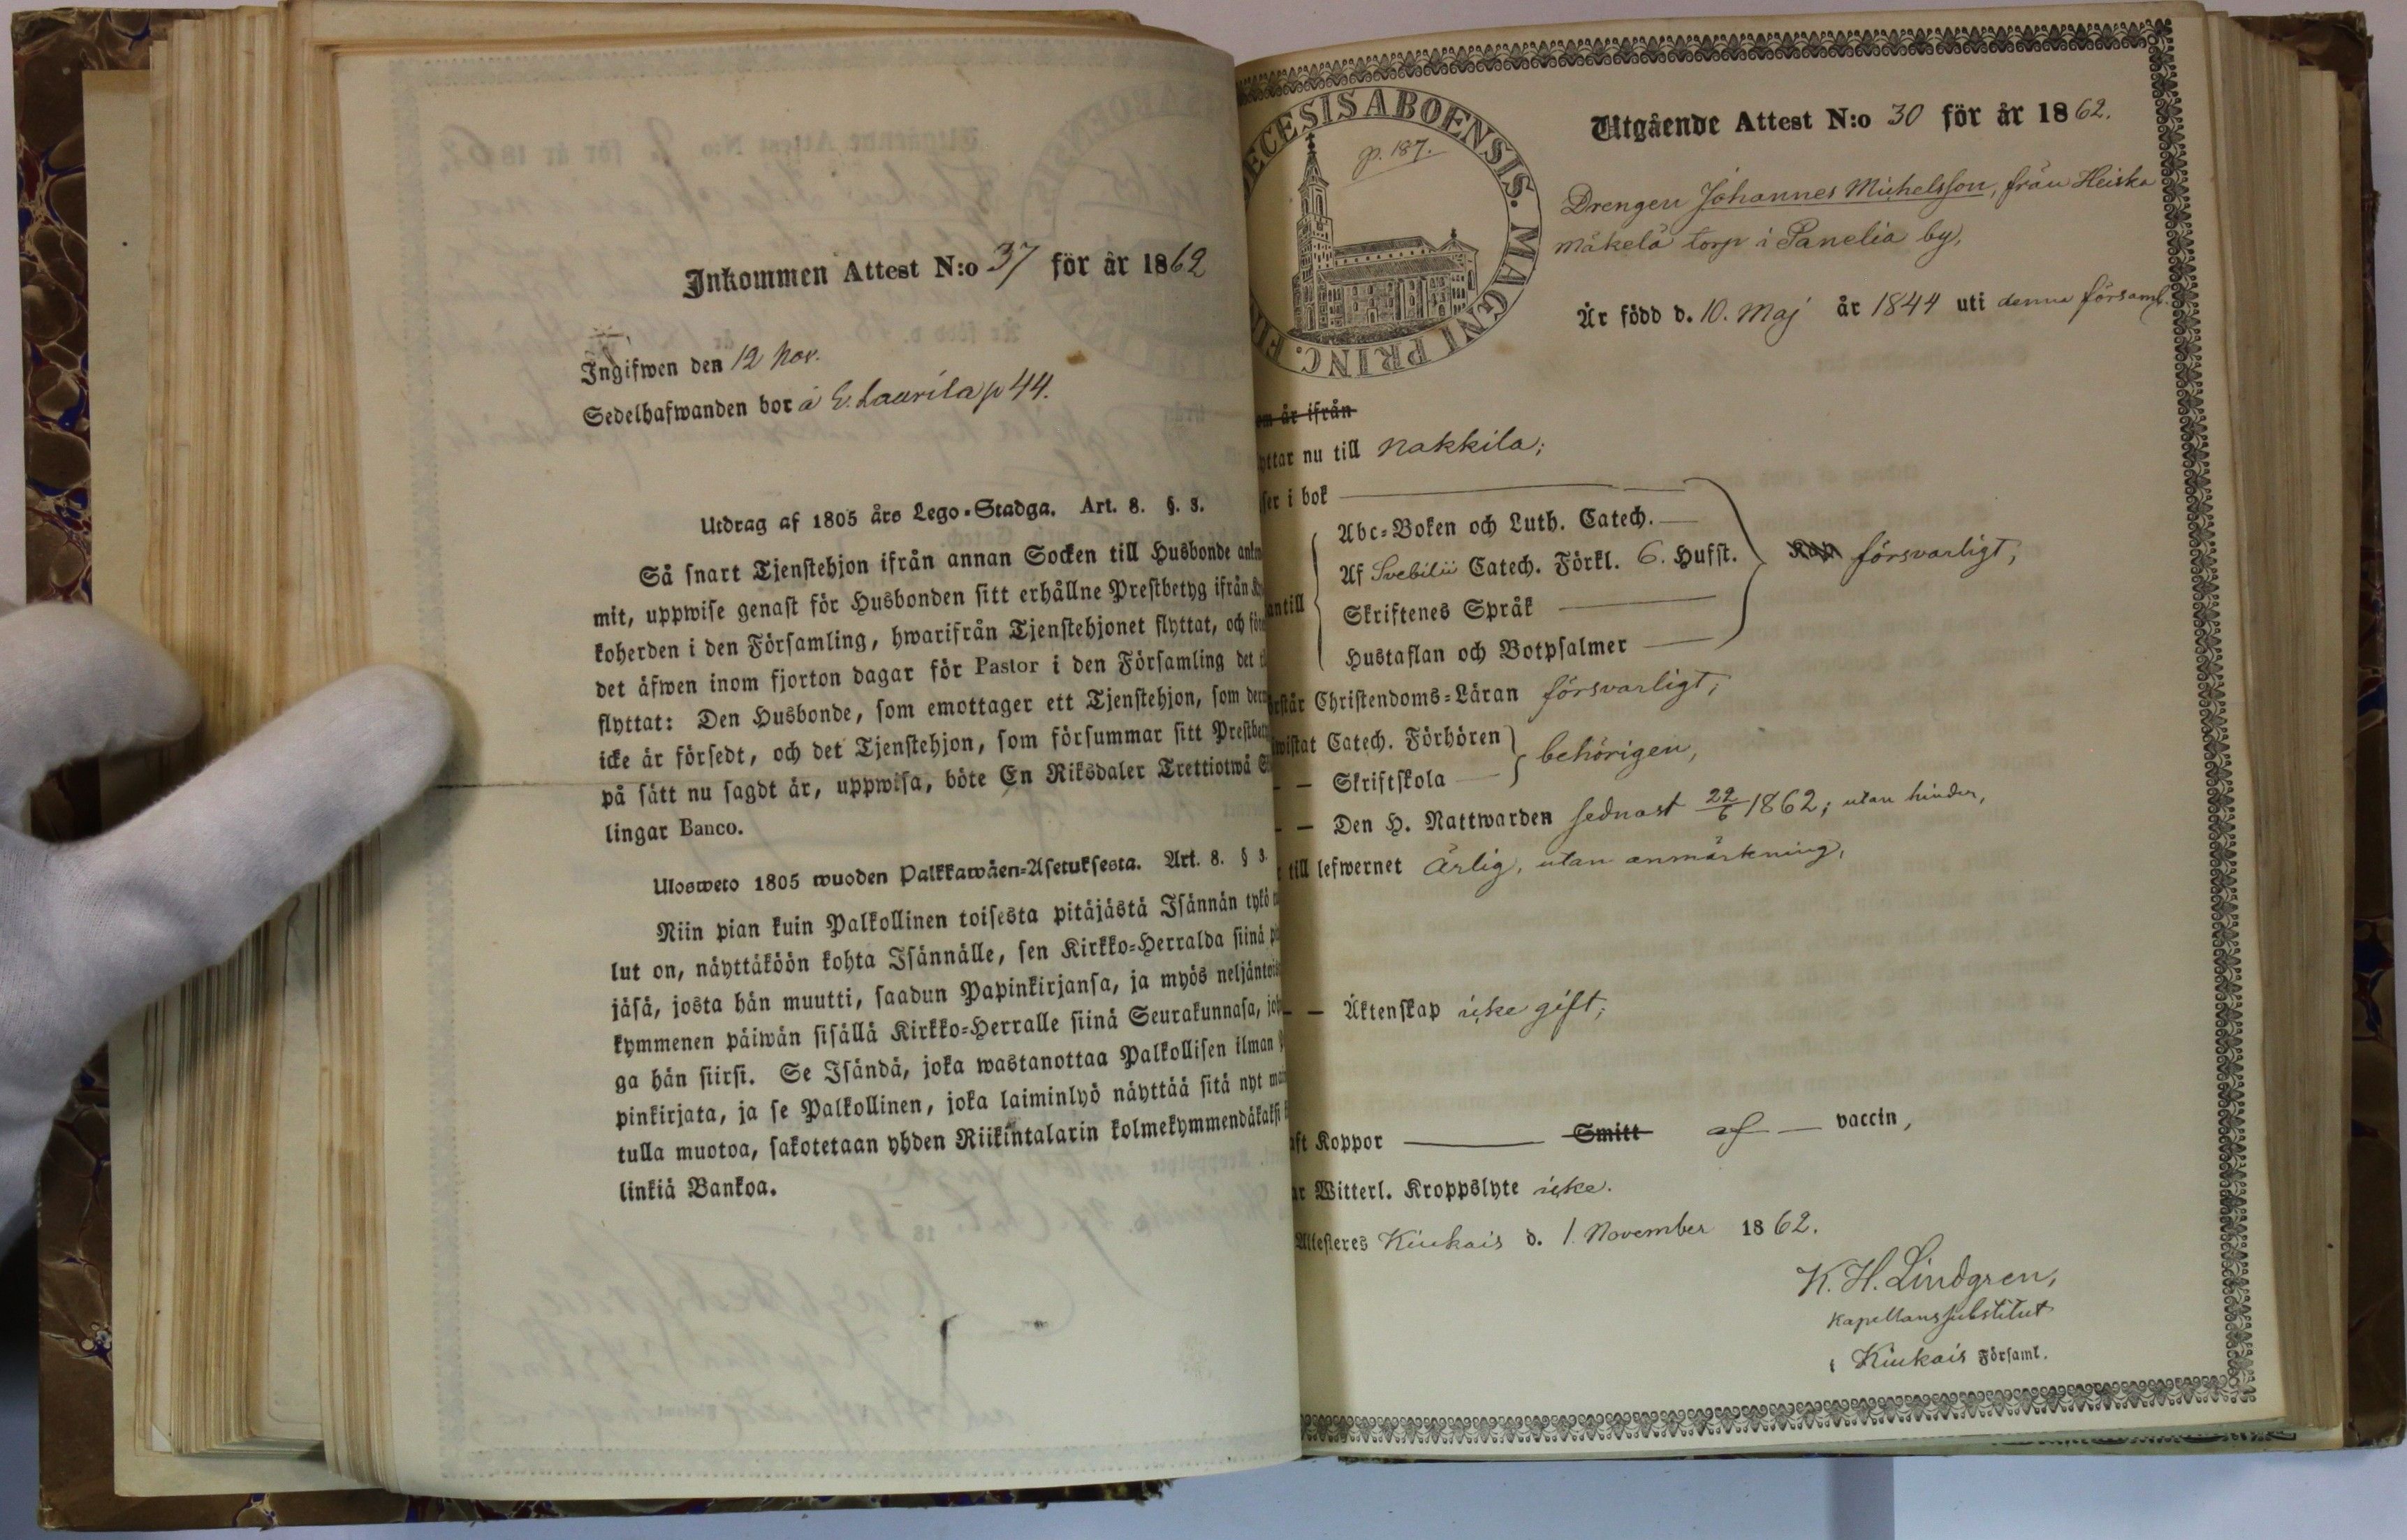 Inkommen Attest N:o 37 för år 1862
Ingifwen den 12 Nov.
Sedelhafwanden bor å E. Laurila p 44.
Utdrag af 1805 års Lego-Stadga. Art. 8. §. 3.
Så snart Tjenstehjon ifrån annan Socken till Husbonde
mit, uppwise genast för Husbonden sitt erhållne Prestbetyg ifrån
koherden i den Församling, hwarifrån Tjenstehjonet flyttat, och
det äfwen inom fjorton dagar för Pastor i den Församling det
flyttat: Den Husbonde, som emottager ett Tjenstehjon, som
icke är försedt, och det Tjenstehjon, som försummar sitt
på sätt nu sagdt är, uppwisa, böte En Riksdaler Trettiotwå
lingar Banco.
Ulosweto 1805 wuoden Palkkawäen-Asetuksesta. Art. 8. § 3.
Niin pian kuin Palkollinen toisesta pitäjästä Isännän tykö
lut on, näyttäköön kohta Isännälle, sen Kirkko-Herralda siinä
jäsä, josta hän muutti, saadun Papinkirjansa, ja myös
kymmenen päiwän sisällä Kirkko-Herralle siinä Seurakunnasa,
ga hän siirsi. Se Isändä, joka wastanottaa Palkollisen ilman
pinkirjata, ja se Palkollinen, joka laiminlyö näyttää sitä nyt
tulla muotoa, sakotetaan yhden Riikintalarin kolmekymmendäkaksi
linkiä Bankoa.
ECESIS ABOENSIS. MAGNI PRINC. FI
p. 187.
Utgående Attest N:o 30 för år 1862.
Drengen Johannes Michelsson, från Heiska
Mäkelä torp i Panelia by,
Är född d. 10. Maj år 1844 uti denna församl.
om är ifrån
yttar nu till Nakkila;
ser i bok
Abc-Boken och Luth. Catech.
antill Af Svebilii Catech. Förkl. 6. Hufst. försvarligt,
Skriftenes Språk
Hustaflan och Botpsalmer
rstår Christendoms-Läran försvarligt;
wistat Catech. Förhören behörigen,
— Skriftskola
— Den H. Nattwarden sednast 22/6 1862; utan hinder,
till lefwernet Ärlig, utan anmärkning,
— Äktenskap icke gift;
aft Koppor Smitt af vaccin,
ar Witterl. Kroppslyte icke.
Attesteres Kiukais d. 1. November 1862.
K. H. Lindgren,
Kapellanssubstitut
i Kiukais Församl.